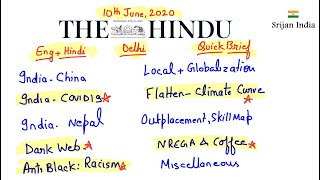 10th June, 2020
THE HINDU
Srijan India
Eng + Hindi
Delhi
Quick Brief
India-China
Local + Globalization
India-COVID19
Flatten-Climate Curve
India-Nepal
Outplacement, Skill Map
Dark Web
NREGA & Coffee
Anti Black: Racism
Miscellaneous